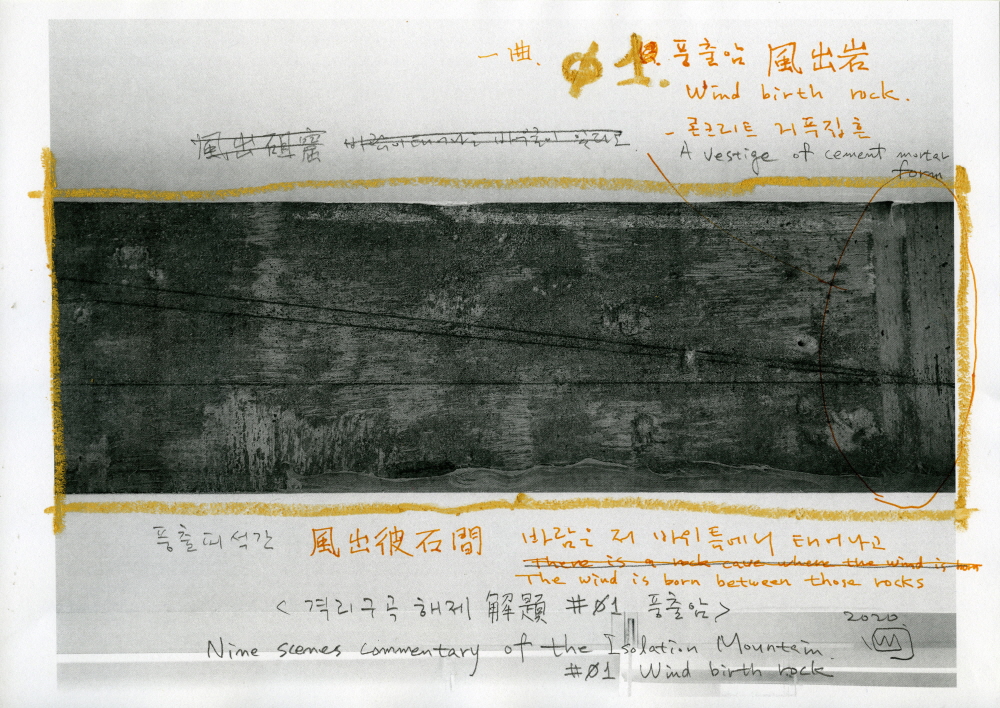 一曲. Ø1. 풍출암 風出岩
Wind birth rock.
- 콘크리트 거푸집 흔
A vestige of cement mortar
form
風出硘窟 바람이 태어나는 바위굴이 있다고
풍출피석간 風出彼石間 바람은 저 바위틈에서 태어나고
There is a rock cave where the wind is born
The wind is born between those rocks
<격리구곡 해제 解題 #Ø1 풍출암>
2020.
Nine scenes commentary of the Isolation Mountain.
#Ø1. Wind birth rock